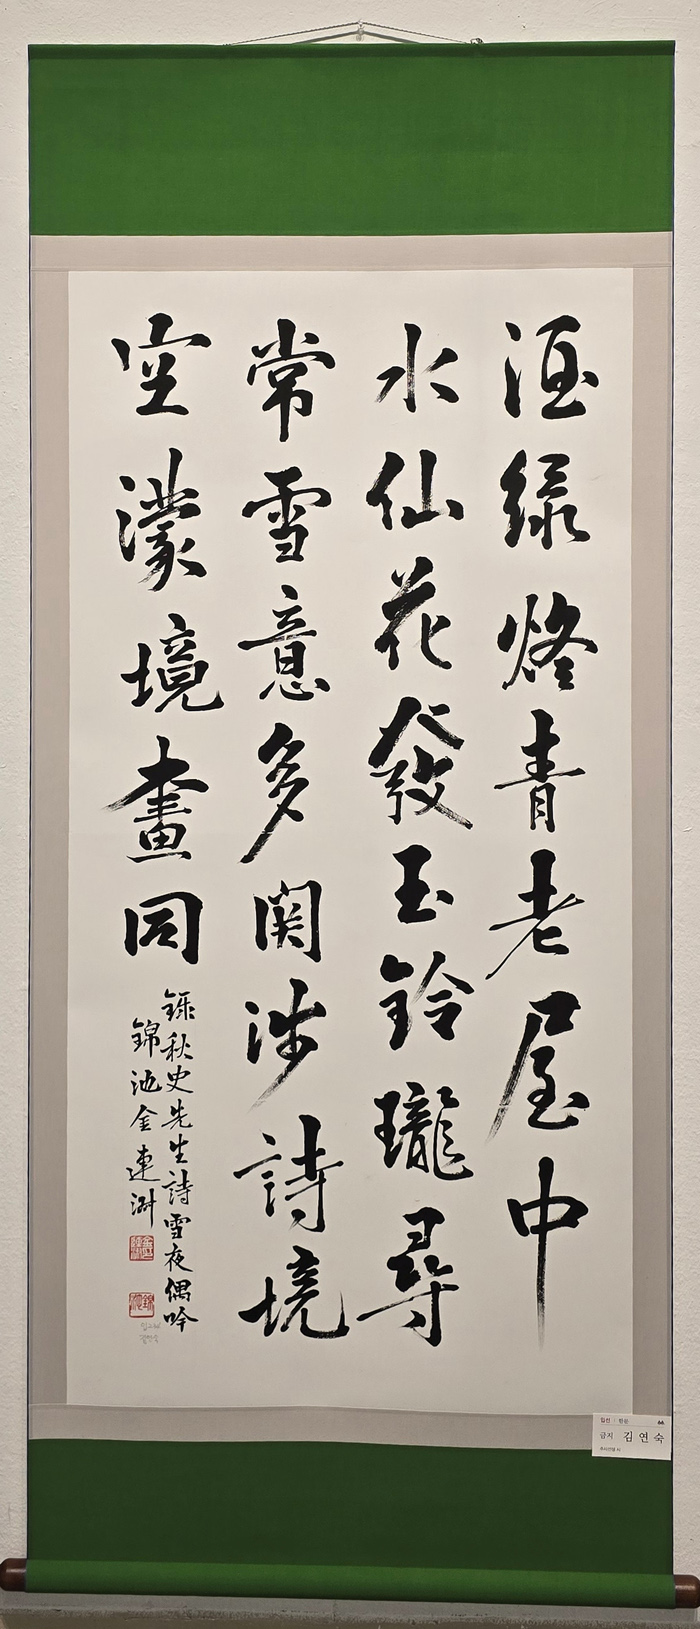 酒綠燈青老屋中
水仙花發玉鈴瓏尋
常雪意多関涉詩境
空濛境畫同
錄秋史先生詩雪夜偶吟
錦池金連淑
입선 한문 66.
금지 김연숙
추사선생 시